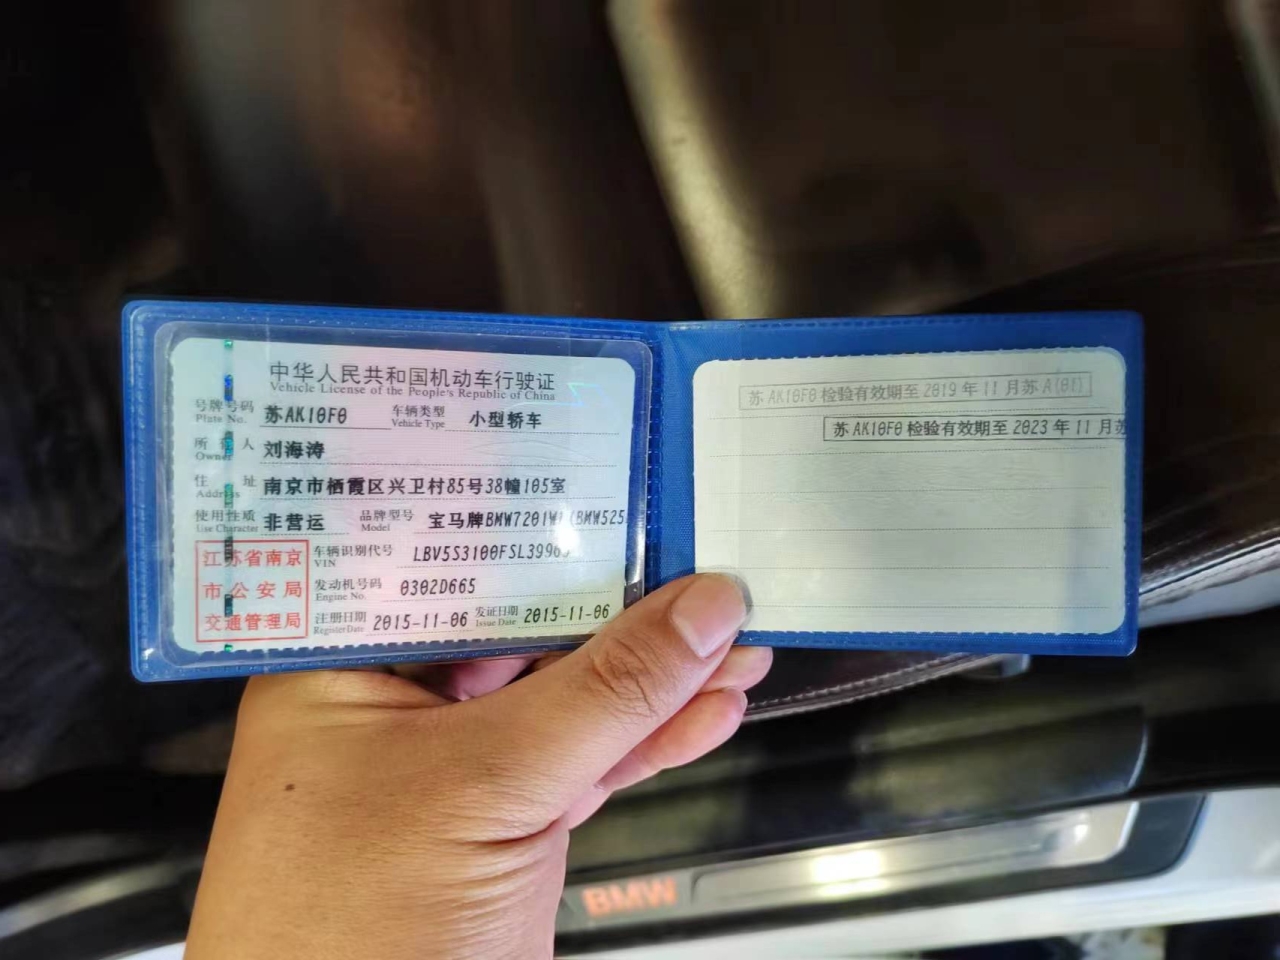 中华人民共和国机动车行驶证
Vehicle License of the People's Republic of China
号牌号码 苏AK10F0 车辆类型 小型轿车
Plate No. Vehicle Type
所有人 刘海涛
Owner
住址 南京市栖霞区兴卫村85号38幢105室
Address
使用性质 非营运 品牌型号 宝马牌BMW7201
Use Character Model
江苏省南京
市公安局
交通管理局
车辆识别代号 LBV5S3100FSL399
VIN
发动机号码 0302D665
Engine No.
注册日期 2015-11-06 发证日期 2015-11-06
Register Date Issue Date
苏AK10F0检验有效期至2019年11月苏A(01)
苏AK10F0检验有效期至2023年11月苏
BMW